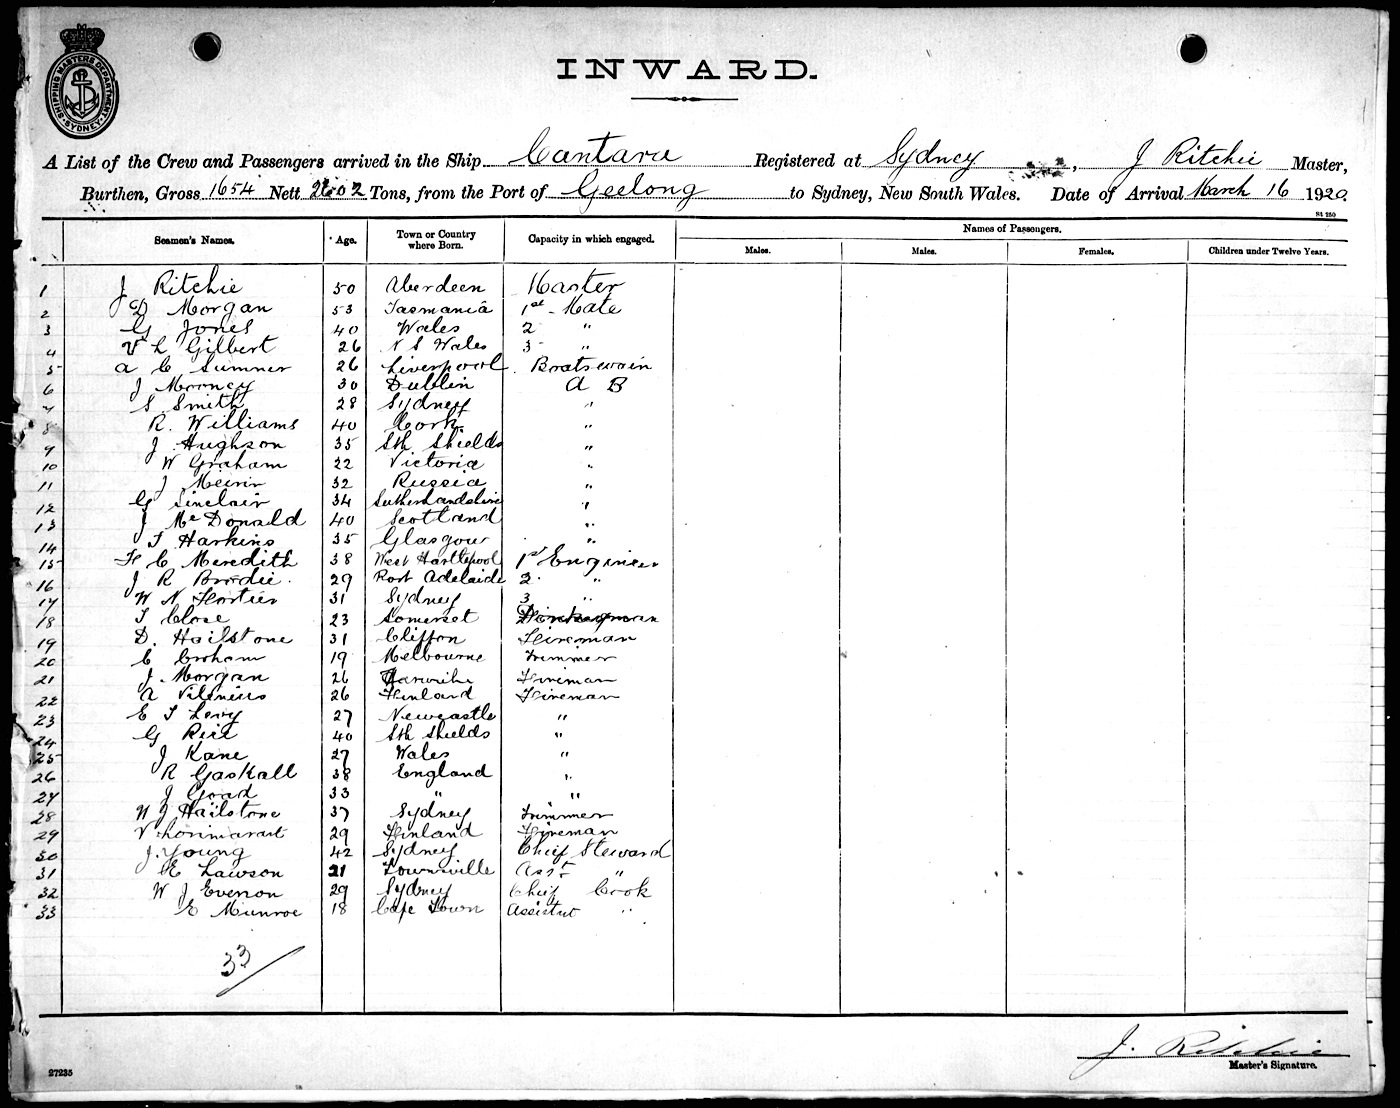 SHIPPING MASTERS DEPARTMENT
SYDNEY
INWARD.
A List of the Crew and Passengers arrived in the Ship Cantara Registered at Sydney, J Ritchie Master,
Burthen, Gross 1654 Nett Tons, from the Port of Geelong to Sydney, New South Wales. Date of Arrival March 16 1920.
St 250
Seamen's Names. Age. Town or Country where Born. Capacity in which engaged. Names of Passengers.
Males. Males. Females. Children under Twelve Years.
1 J Ritchie 50 Aberdeen Master
2 D Morgan 53 Tasmania 1st Mate
3 G Jones 40 Wales 2 "
4 V L Gilbert 26 N S Wales 3 "
5 A C Sumner 26 Liverpool Boatswain
6 J Mooney 30 Dublin A B
7 S Smith 28 Sydney "
8 R. Williams 40 Cork "
9 J Hughson 35 Sth Shields "
10 W Graham 22 Victoria "
11 J 32 Russia "
12 G Sinclair 34 Sutherlandshire "
13 J McDonald 40 Scotland "
14 T Harkins 35 Glasgow "
15 F C Meredith 38 West Hartlepool 1st Engineer
16 J R Brodie 29 Port Adelaide 2 "
17 W N 31 Sydney 3 "
18 T Close 23 Somerset Donkeyman
19 D. Hailstone 31 Clifton Fireman
20 C Croham 19 Melbourne Trimmer
21 J. Morgan 26 Fireman
22 A Vilenius 26 Finland Fireman
23 E T Levy 27 Newcastle "
24 G 40 Sth Shields "
25 J Kane 27 Wales "
26 R Gaskall 38 England "
27 J Goad 33 " "
28 W J Hailstone 37 Sydney Trimmer
29 V 29 Finland Fireman
30 J. Young 42 Sydney Chief Steward
31 E Lawson 21 Townsville Asst "
32 W J Everson 29 Sydney Chief Cook
33 E Munroe 18 Cape Town Assistant "
33
J. Ritchie
Master's Signature.
27235